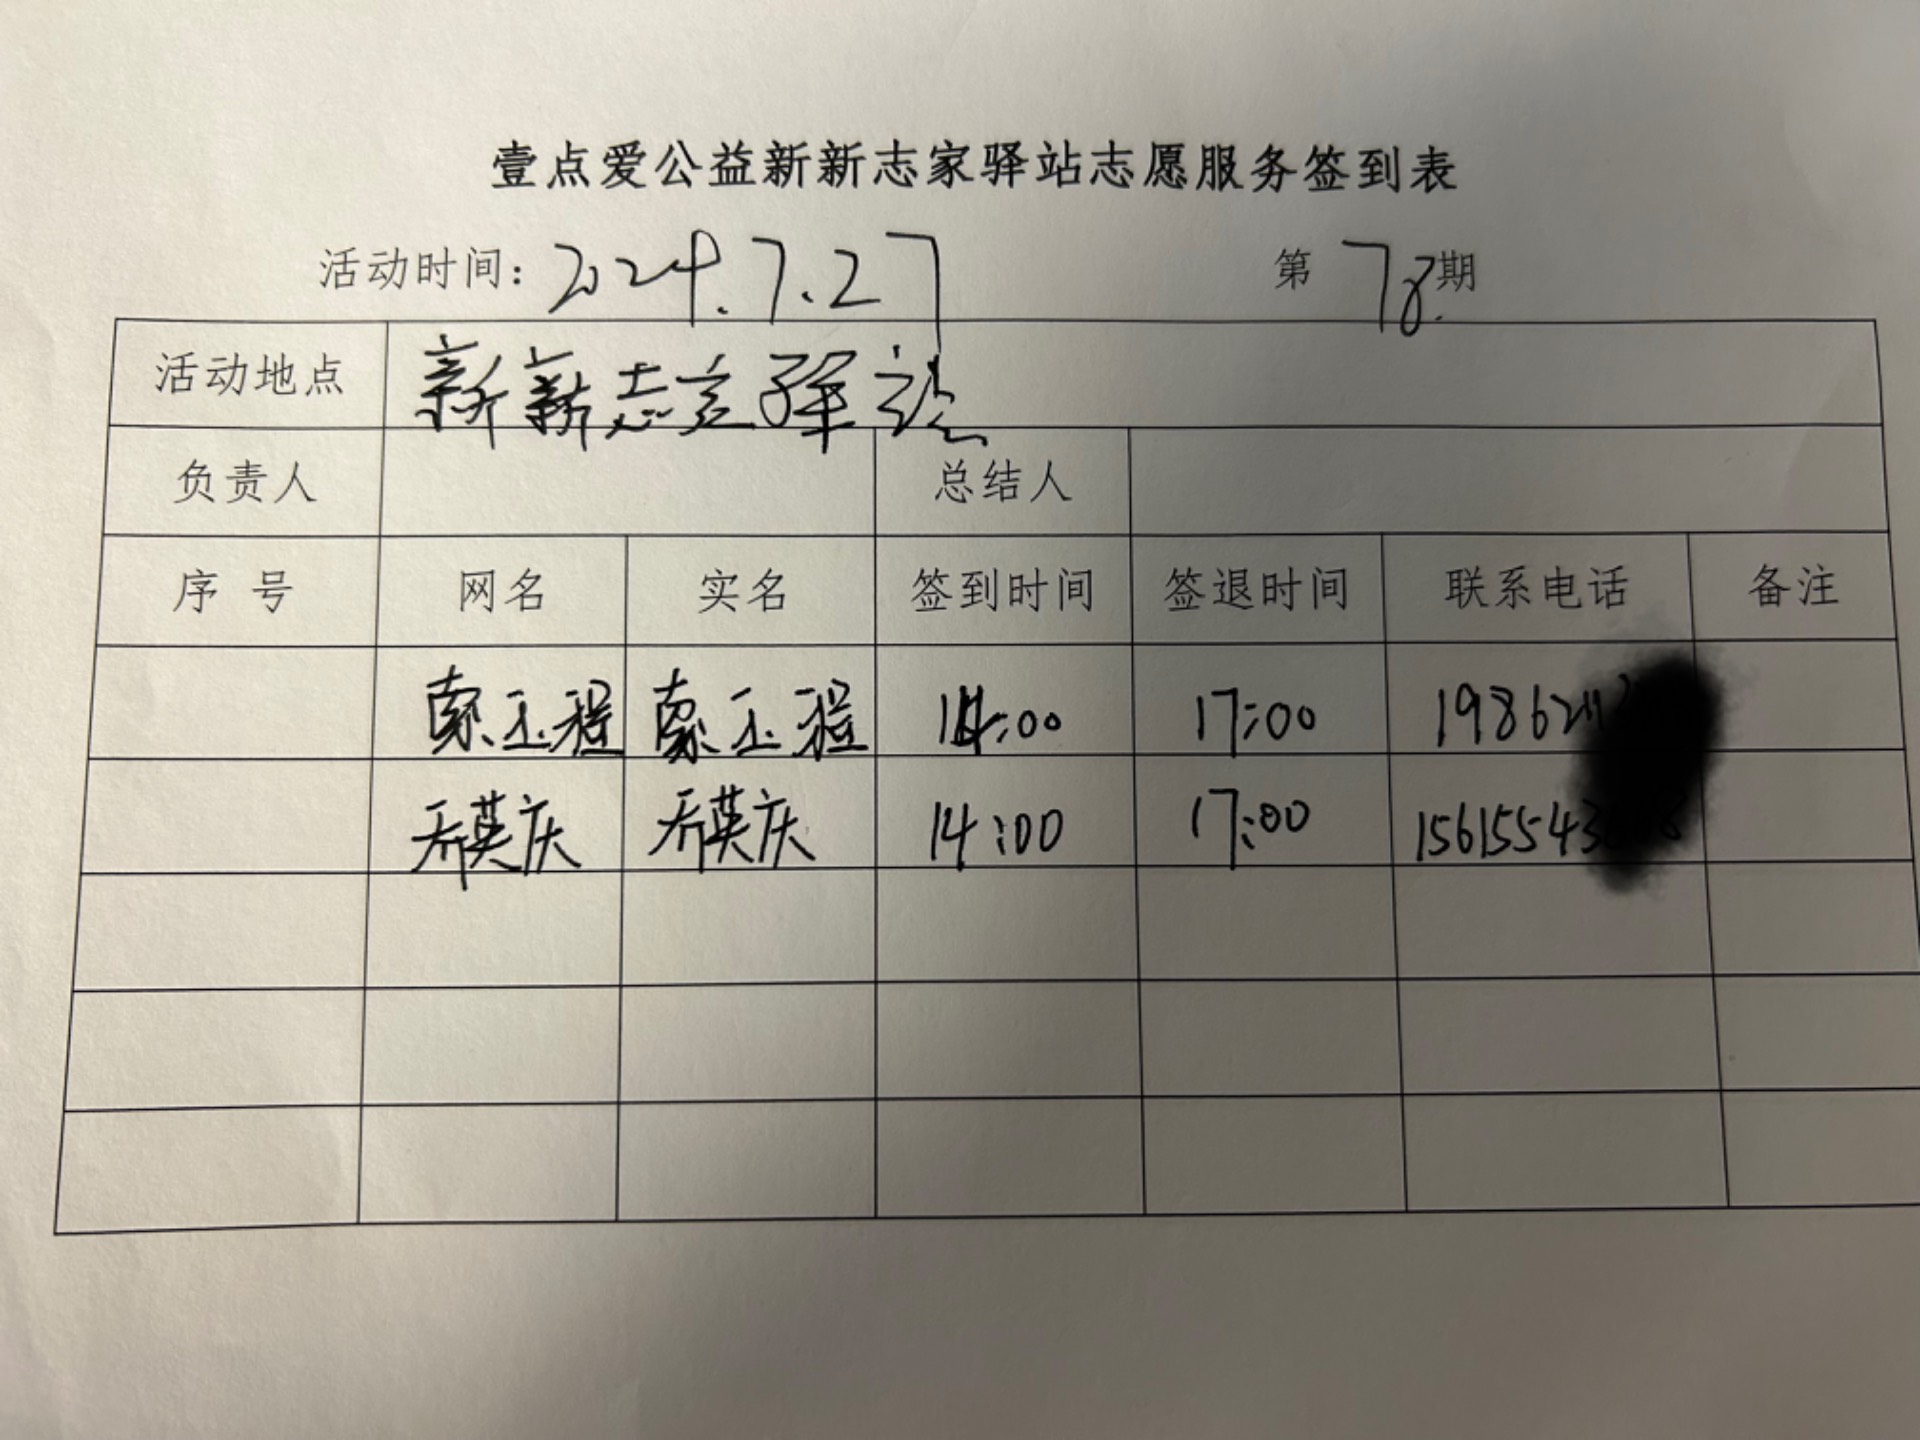 壹点爱公益新新志家驿站志愿服务签到表
活动时间：2024.7.27 第 78. 期
活动地点 新新志家驿站
负责人 总结人
序号 网名 实名 签到时间 签退时间 联系电话 备注
索玉程 索玉程 14:00 17:00 198621
乔英庆 乔英庆 14:00 17:00 15615543